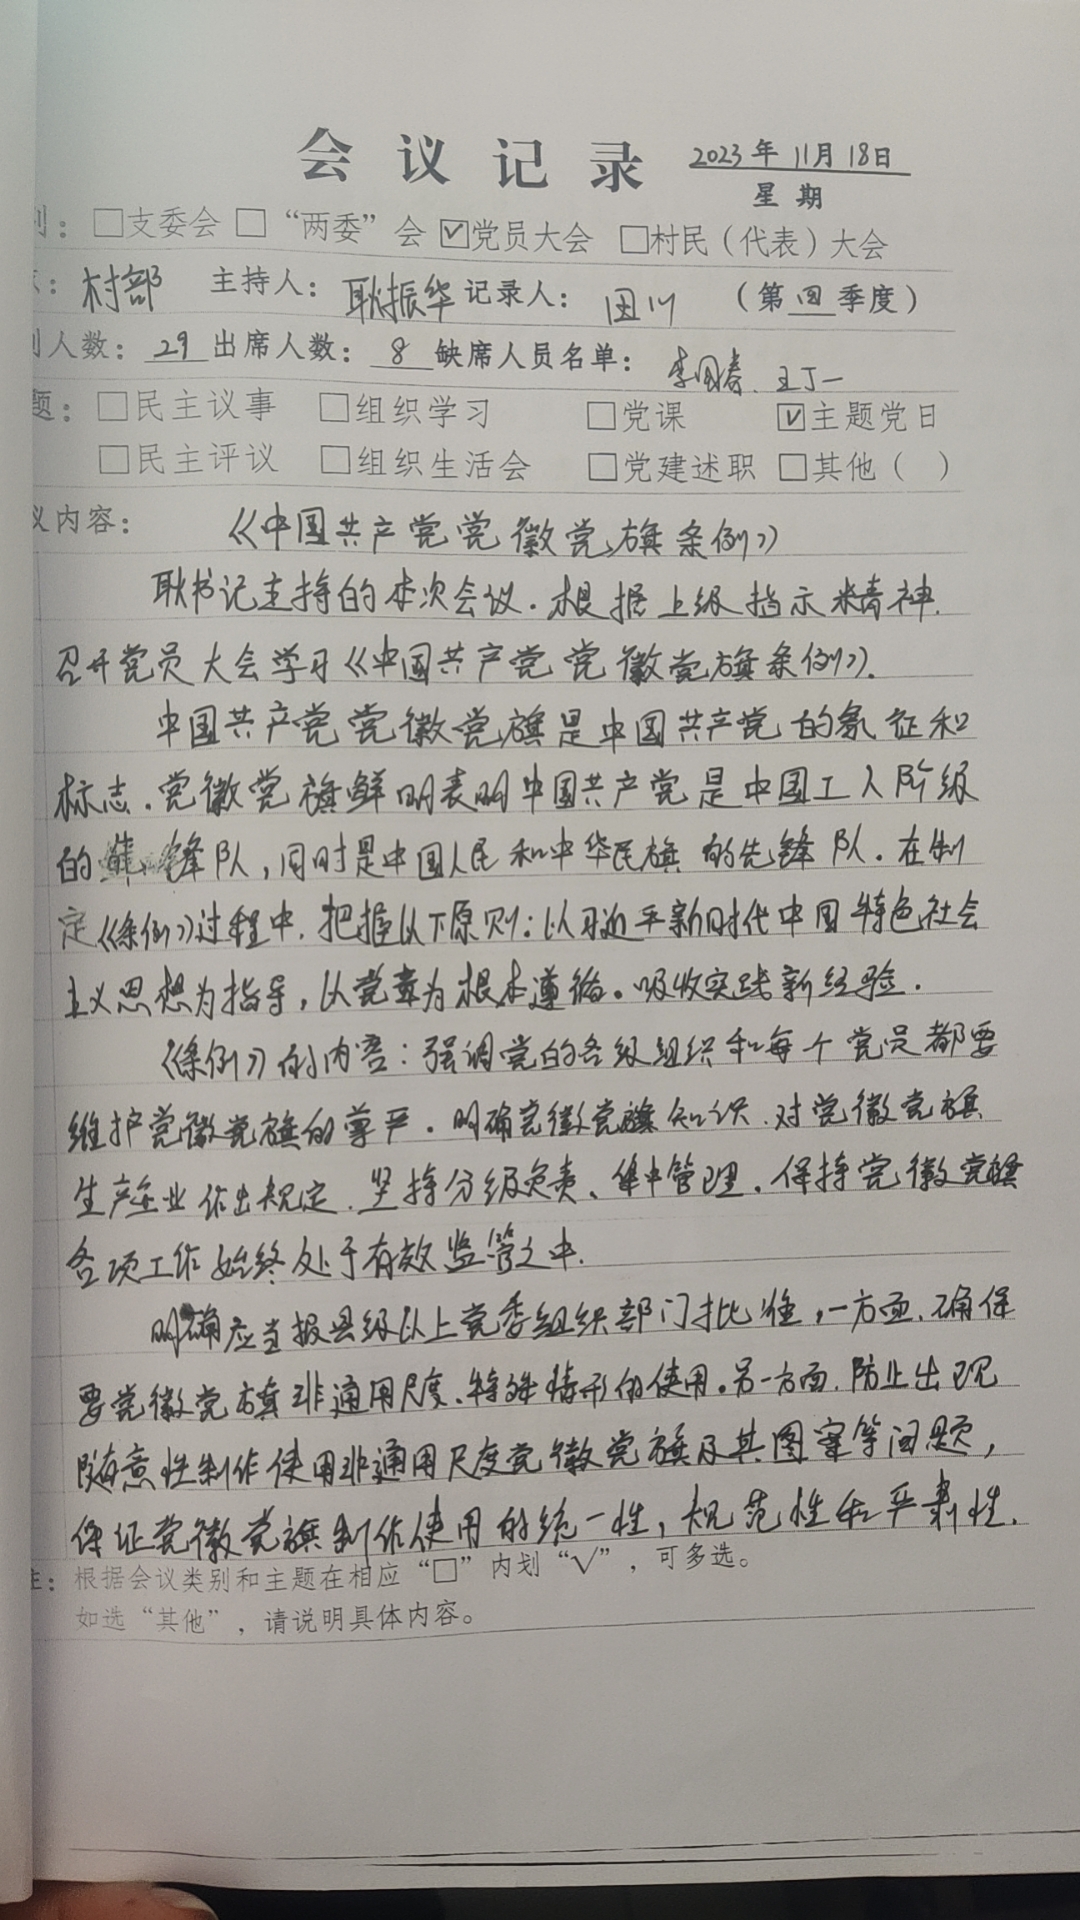 会议记录 2023年11月18日
星期
别：□支委会 □“两委”会 ☑党员大会 □村民（代表）大会
：村部 主持人：耿振华 记录人：田川 （第四季度）
到人数：29 出席人数：8 缺席人员名单：李国春、王丁一
题：□民主议事 □组织学习 □党课 ☑主题党日
□民主评议 □组织生活会 □党建述职 □其他（ ）
议内容： 《中国共产党党徽党旗条例》
耿书记主持的本次会议.根据上级指示精神.
召开党员大会学习《中国共产党党徽党旗条例》.
中国共产党党徽党旗是中国共产党的象征和
标志.党徽党旗鲜明表明中国共产党是中国工人阶级
的 锋队,同时是中国人民和中华民族的先锋队.在制
定《条例》过程中.把握以下原则:以习近平新时代中国特色社会
主义思想为指导,以党章为根本遵循。吸收实践新经验.
《条例》的内容:强调党的各级组织和每个党员都要
维护党徽党旗的尊严.明确党徽党旗知识.对党徽党旗
生产企业作出规定.坚持分级负责、集中管理.保持党徽党旗
各项工作始终处于有效监管之中.
明确应当报县级以上党委组织部门批准,一方面.确保
要党徽党旗非通用尺度、特殊情形的使用。另一方面.防止出现
随意性制作使用非通用尺度党徽党旗及其图案等问题,
保证党徽党旗制作使用的统一性,规范性和严肃性.
注：根据会议类别和主题在相应“□”内划“√”，可多选。
如选“其他”，请说明具体内容。